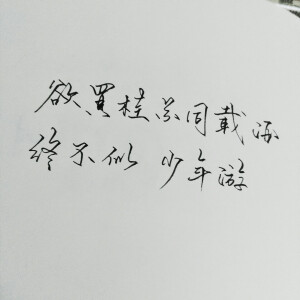 欲買桂花同载酒
终不似 少年游